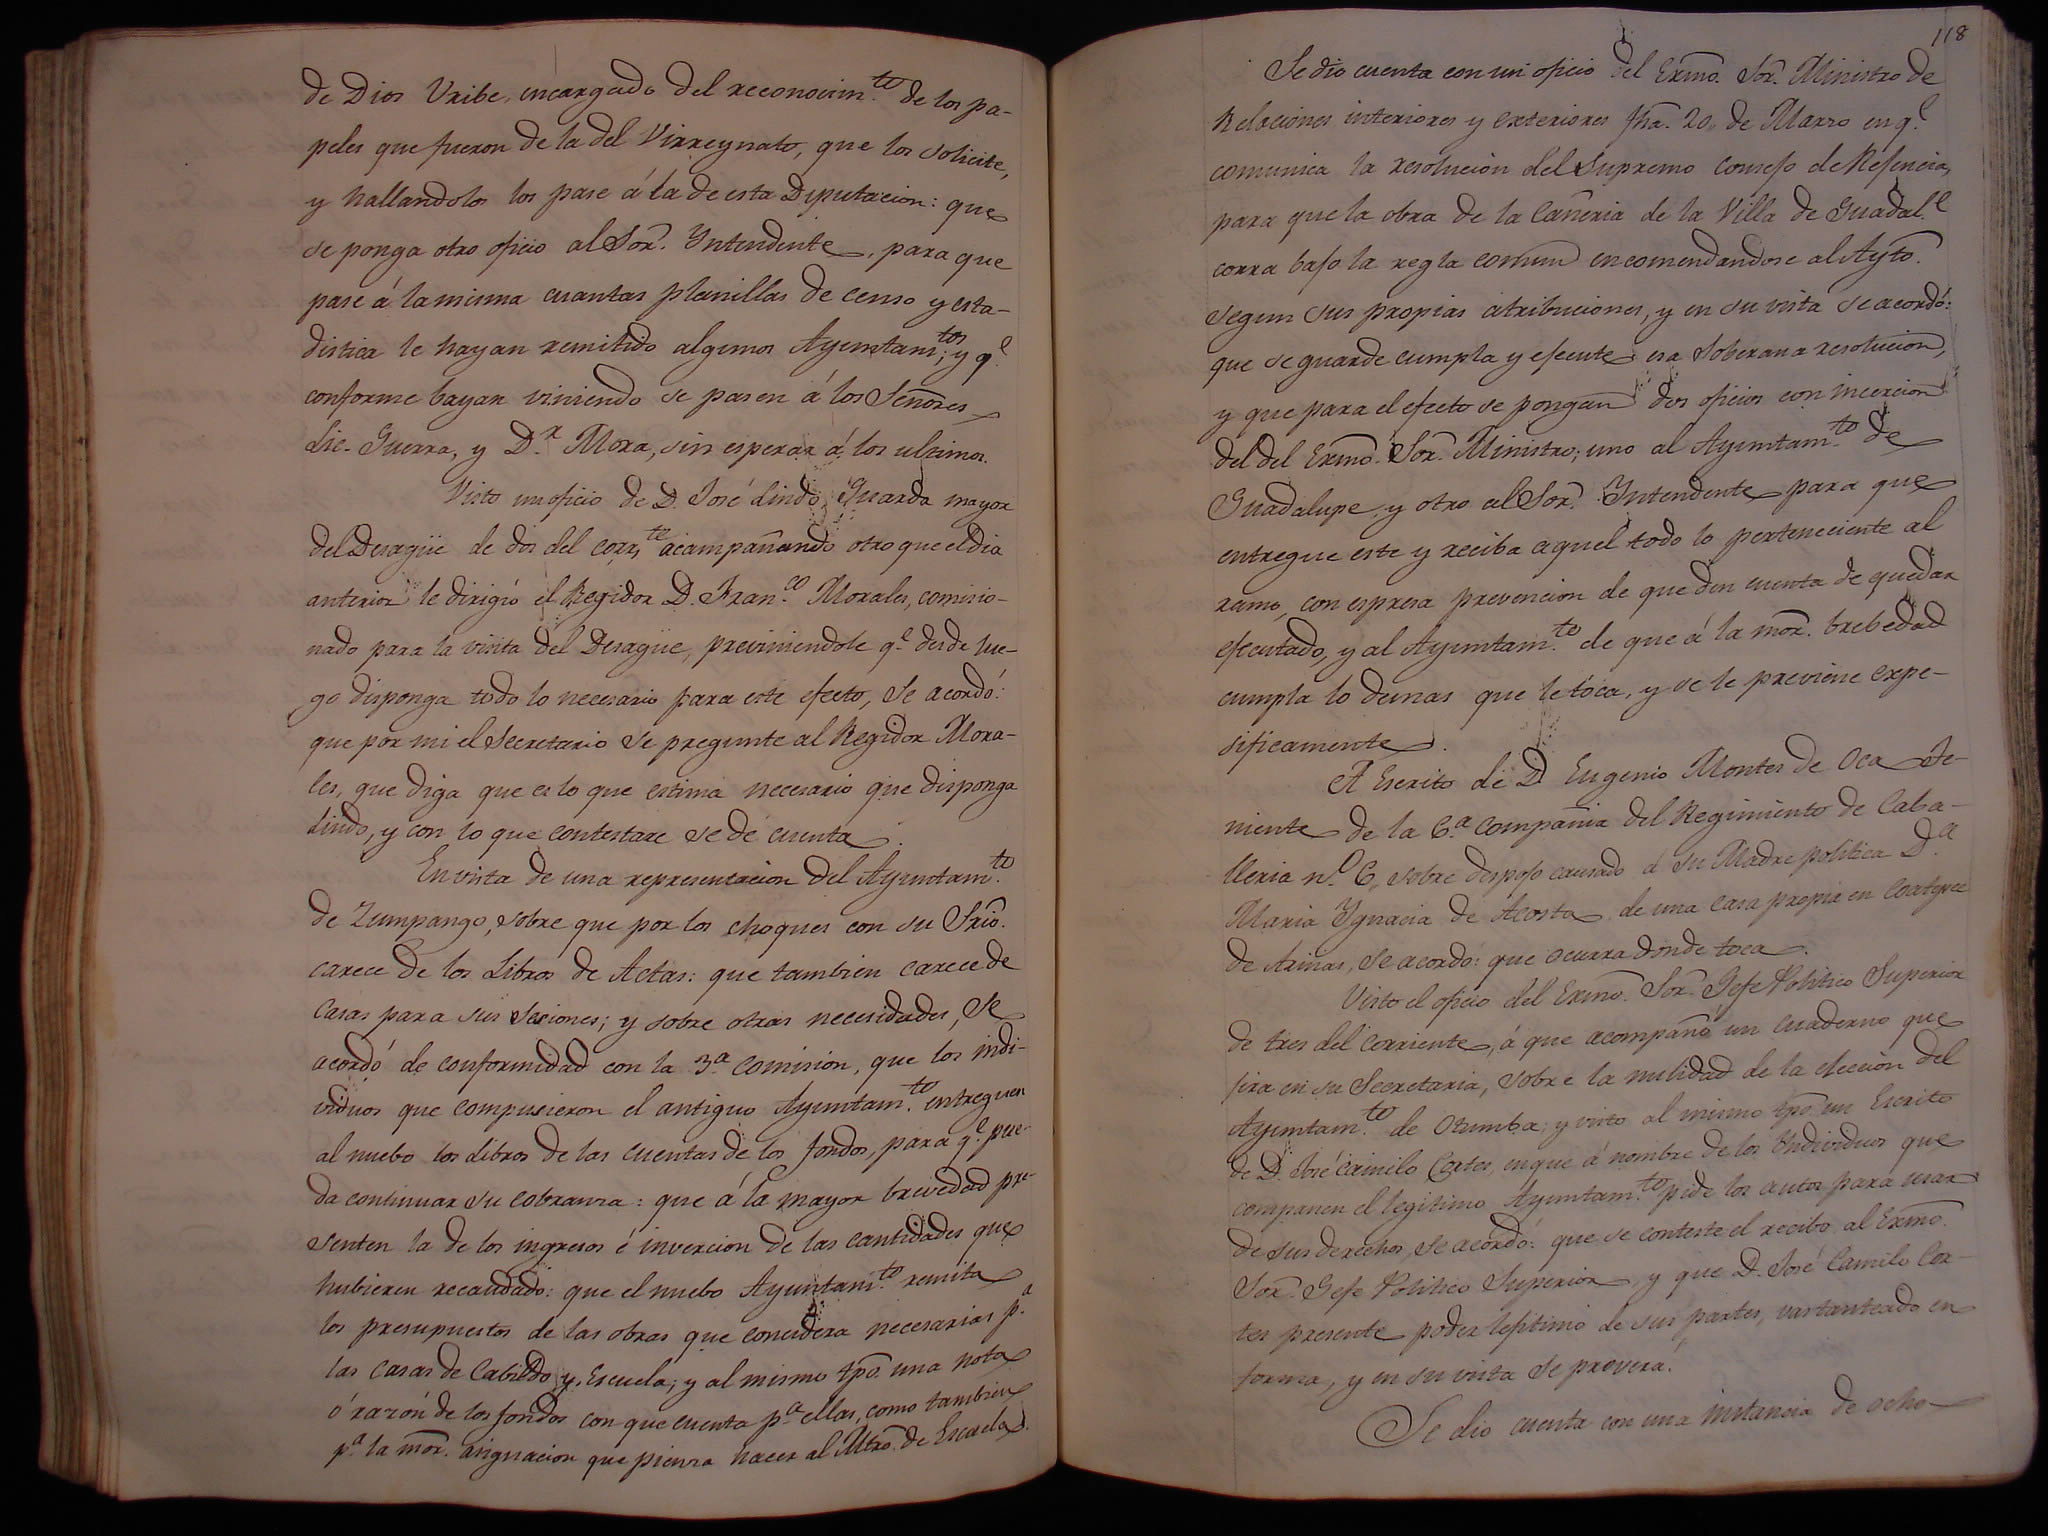 de Dios Uribe, encargado del reconocim.to de los pa-
peles que fueron de la del Virreynato, que los solicite,
y hallandolos los pase á la de esta Diputacion: que
se ponga otro oficio al Sor. Yntendente, para que
pase á la misma cuantas planillas de censo y esta-
distica le hayan remitido algunos Ayuntam.tos; y q.e
conforme bayan viniendo se pasen á los Señores
Lic. Guerra, y D.r Mora, sin esperar á los ultimos.
Visto un oficio de D. José Lindo, Guarda mayor
del Desagüe de dos del corr.te acampañando otro que el dia
anterior le dirigió el Regidor D. Fran.co Morales, comicio-
nado para la visita del Desagüe, previniendole q.e desde lue-
go disponga todo lo necesario para este efecto, Se acordó:
que por mi el Secretario se pregunte al Regidor Mora-
les, que diga que es lo que estima necesario que disponga
Lindo, y con lo que contestare se dé cuenta.
En vista de una representacion del Ayuntam.to
de Zumpango, sobre que por los choques con su Srio.
carece de los Libros de Actas: que tambien carece de
Casas para sus Sesiones; y sobre otras necesidades, Se
acordó de conformidad con la 3.a comision, que los indi-
viduos que compusieron el antiguo Ayuntam.to entreguen
al nuebo los Libros de las cuentas de los fondos, para q.e pue-
da continuar su cobranza: que á la mayor brevedad pre-
senten la de los ingresos é invercion de las cantidades que
hubieren recaudado: que el nuebo Ayuntam.to remita
los presupuestos de las obras que concidera necesarias p.a
las casas de Cabildo y Escuela; y al mismo tpo. una nota
ó razón de los fondos con que cuenta p.a ellas, como tambien
p.a la mor. asignacion que piensa hacer al Mtro. de Escuela.
118
Se dio cuenta con un oficio del Exmo. Sor. Ministro de
Relaciones interiores y exteriores fha. 20. de Marzo en q.e
comunica la resolucion del Supremo Consejo de Regencia,
para que la obra de la Cañeria de la Villa de Guadal.e
corra bajo la regla comun encomendandose al Ayto.
segun sus propias atribuciones, y en su vista se acordó:
que se guarde cumpla y ejecute esa Soberana resolucion,
y que para el efecto se pongan dos oficios con incercion
del del Exmo. Sor. Ministro; uno al Ayuntam.to de
Guadalupe y otro al Sor. Yntendente para que
entregue este y reciba aquel todo lo perteneciente al
ramo, con espresa prevencion de que den cuenta de quedar
ejecutado, y al Ayuntam.to de que á la mor. brebedad
cumpla lo demas que le toca, y se le previene expe-
sificamente.
A Escrito de D. Eugenio Montes de Oca Te-
niente de la 6.a Compañia del Regimiento de Caba-
lleria n.o 6, sobre despojo causado á su Madre politica D.a
Maria Ygnacia de Acosta de una casa propia en Coatepec
de Arinas, se acordó: que ocurra donde toca.
Visto el oficio del Exmo. Sor. Gefe Politico Superior
de tres del corriente, á que acompaño un cuaderno que
jira en su Secretaria, sobre la nulidad de la eleccion del
Ayuntam.to de Otumba; y visto al mismo tpo. un Escrito
de D. José Camilo Cortes, en que á nombre de los Yndividuos que
componen el legitimo Ayuntam.to pide los autos para usar
de sus derechos, se acordó: que se conteste el recibo al Exmo.
Sor. Gefe Politico Superior, y que D. José Camilo Cor-
tes presente poder lejitimo de sus partes, vastanteado en
forma, y en su vista se proverá.
Se dio cuenta con una instancia de ocho